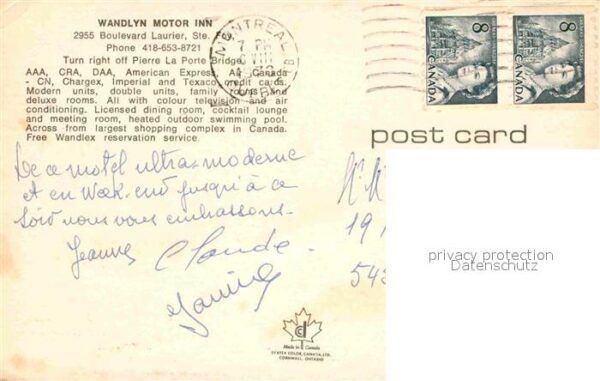 WANDLYN MOTOR INN
2955 Boulevard Laurier, Ste. Foy,
Phone 418-653-8721
Turn right off Pierre La Porte Bridge.
AAA, CRA, DAA, American Express, Air Canada
- CN, Chargex, Imperial and Texaco credit cards.
Modern units, double units, family rooms and
deluxe rooms. All with colour television and air
conditioning. Licensed dining room, cocktail lounge
and meeting room, heated outdoor swimming pool.
Across from largest shopping complex in Canada.
Free Wandlex reservation service.
MONTREAL
7 PM
8
CANADA
8
CANADA
post card
De ce motel ultra-moderne
et en week-end jusqu'à ce
soir nous vous embrassons.
Jeanne Claude
Janine
19
543
privacy protection
Datenschutz
Made in Canada
DEXTER COLOR, CANADA, LTD.
CORNWALL, ONTARIO